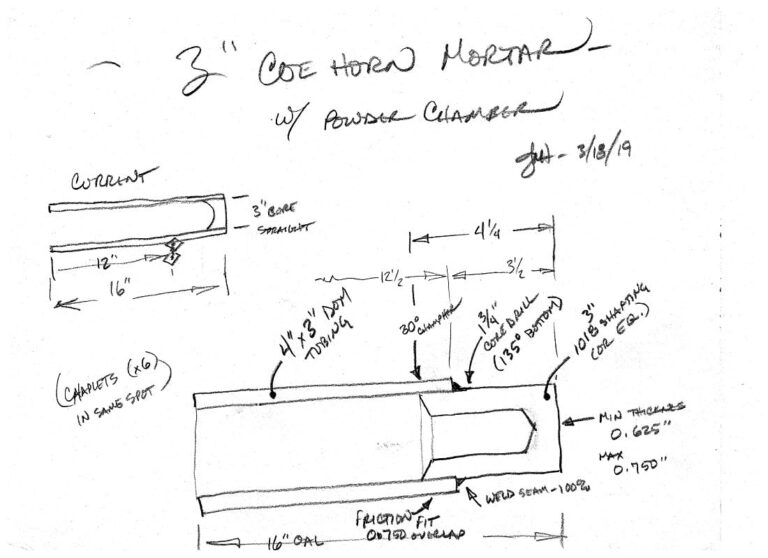 3" COE HORN MORTAR
W/ POWDER CHAMBER
- 3/18/19
CURRENT
3" CORE
STRAIGHT
12"
16"
4 1/4
12 1/2
3 1/2
4" x 3" DOM
TUBING
30° CHAMPHAR
1 3/4"
CORE DRILL
(135° BOTTOM)
3"
1018 SHAFTING
(OR EQ.)
(CHAPLETS (x6)
IN SAME SPOT)
MIN THICKNES
0.625"
MAX
0.750"
WELD SEAM - 100%
FRICTION FIT
0.0750 OVERLAP
16" OAL